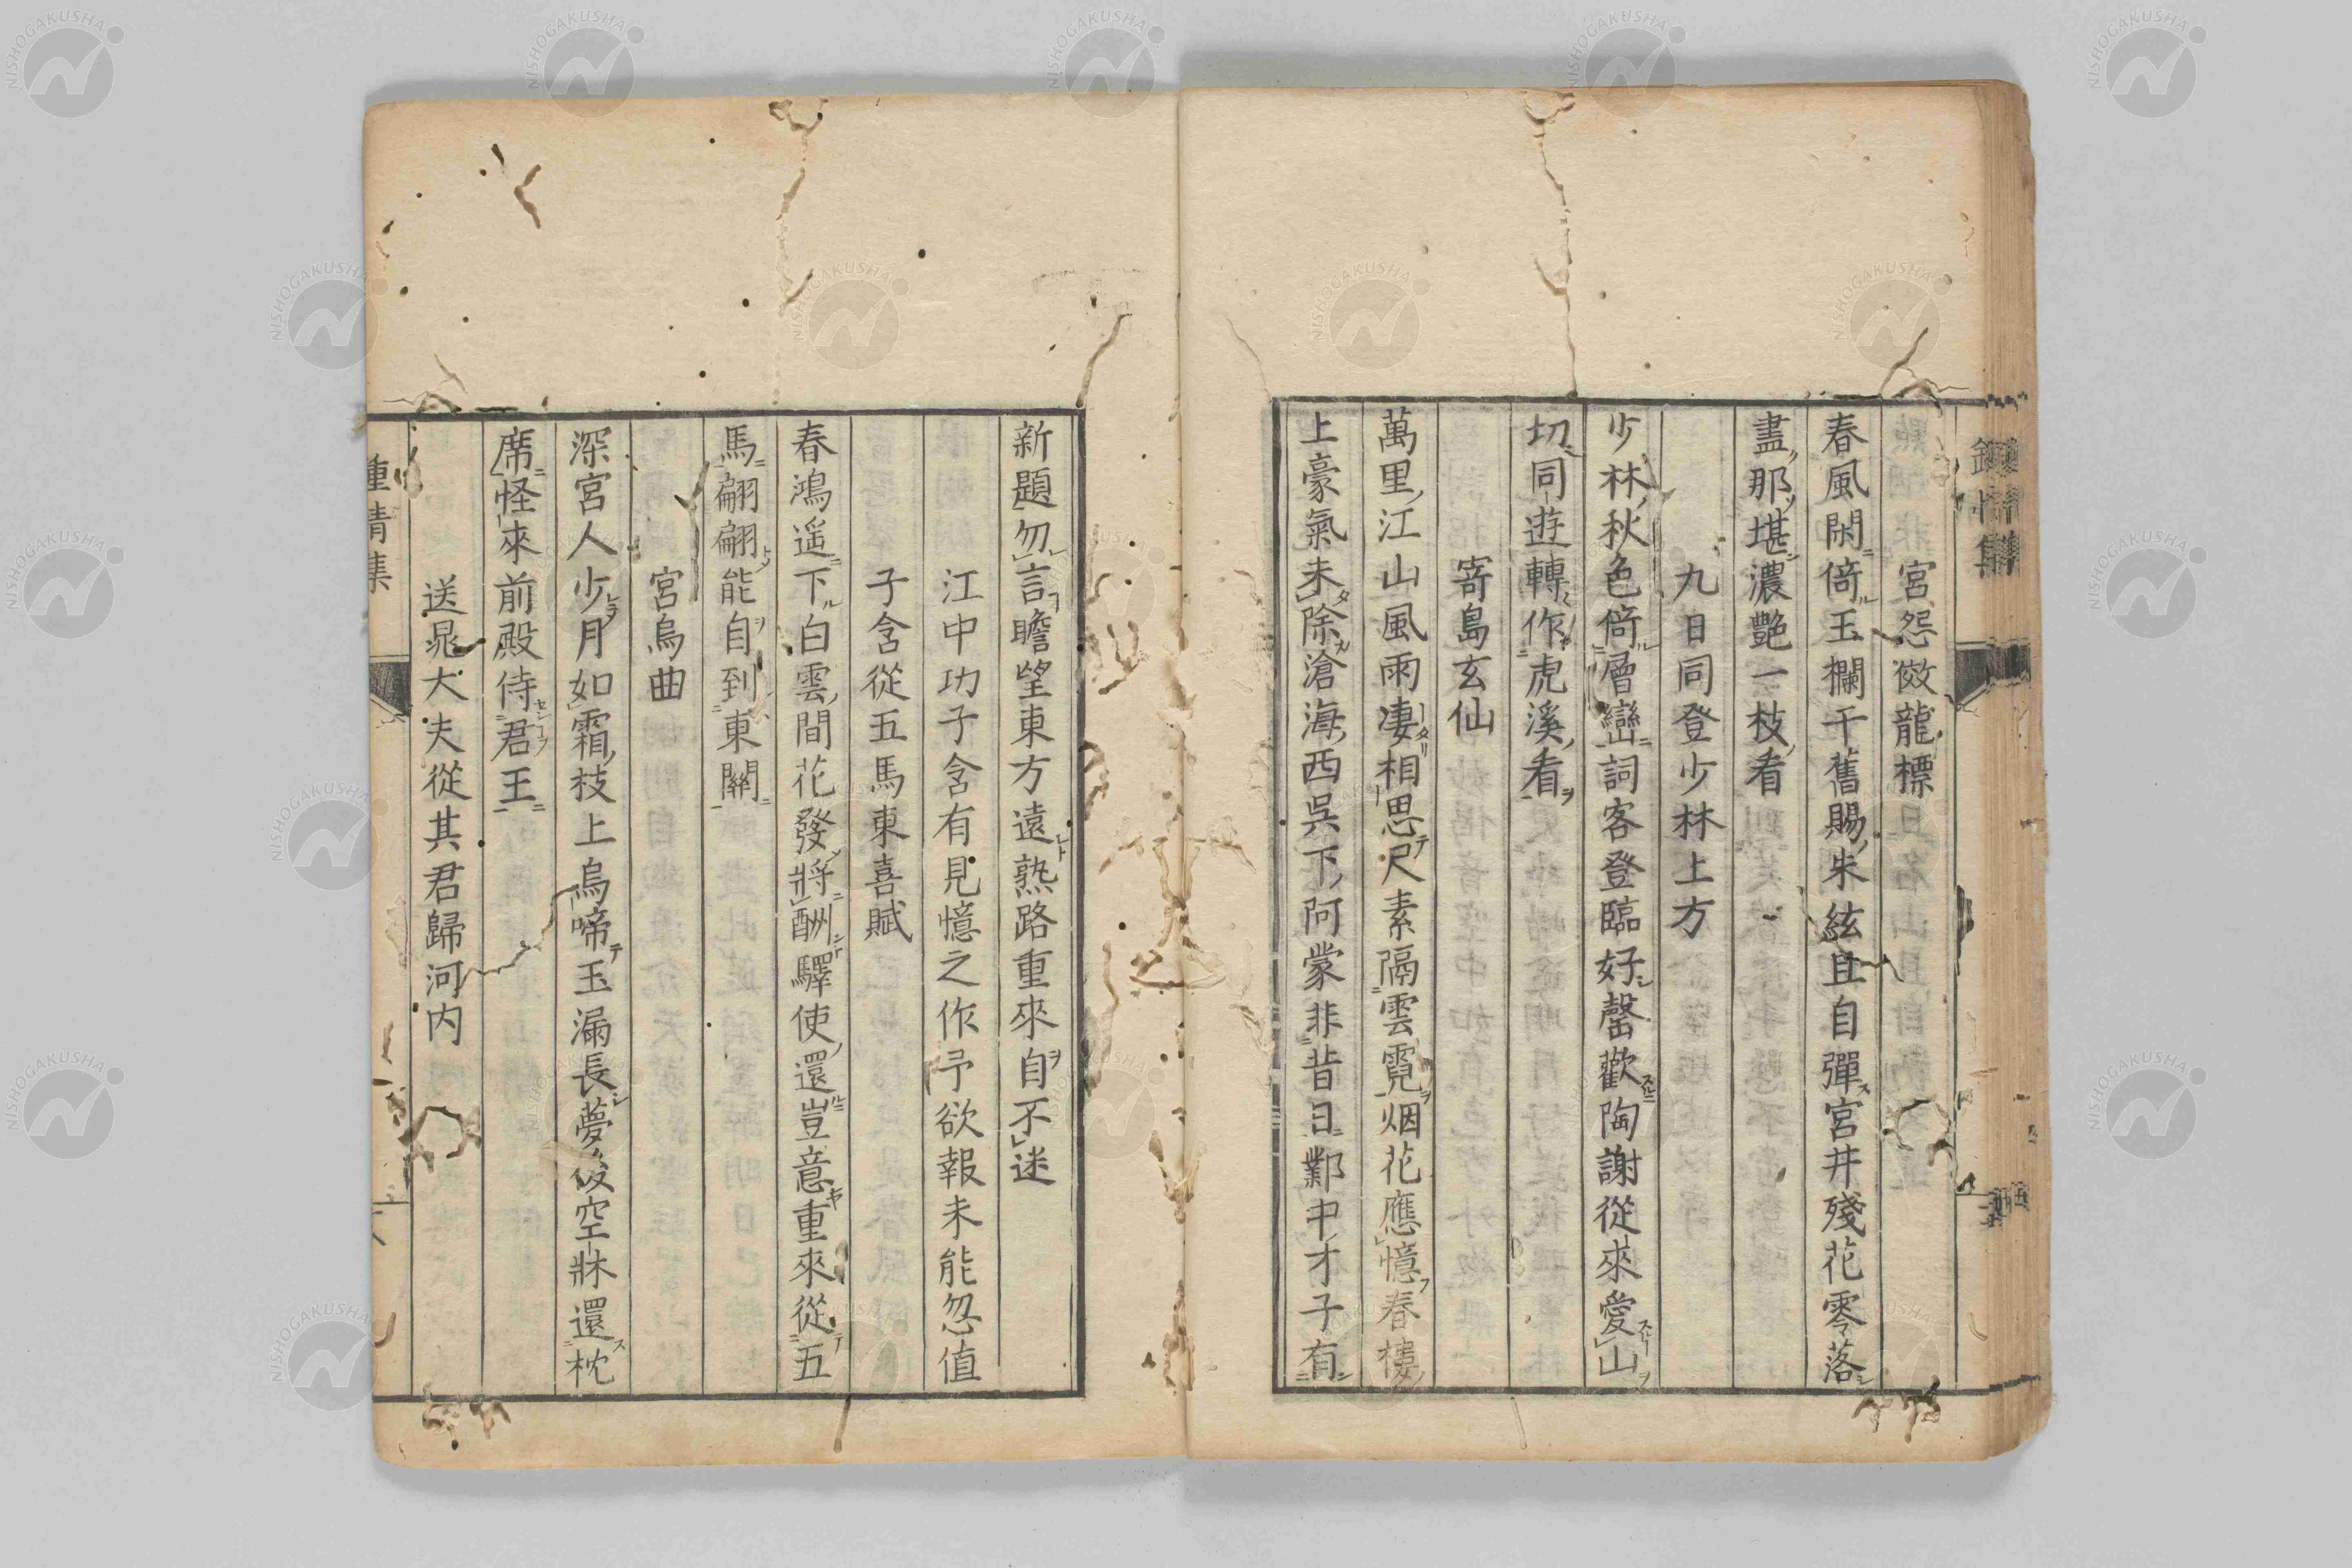 宮怨傚龍標
春風閑倚玉欄干舊賜朱絃且自彈宮井殘花零落
盡那堪濃艷一枝看
九日同登少林上方
少林秋色倚層巒詞客登臨好罄歡陶謝從來愛山
切同遊轉作虎溪看
寄島玄仙
萬里江山風雨凄相思尺素隔雲霓烟花應憶春樓
上豪氣未除滄海西吳下阿蒙非昔日鄴中才子有
新題勿言瞻望東方遠熟路重來自不迷
江中功子含有見憶之作予欲報未能忽值
子含從五馬東喜賦
春鴻遥下白雲間花發將酬驛使還豈意重來從五
馬翩翩能自到東關
宮烏曲
深宮人少月如霜枝上烏啼玉漏長夢後空牀還枕
席怪來前殿侍君王
送晁大夫從其君歸河内
鍾情集
NISHOGAKUSHA